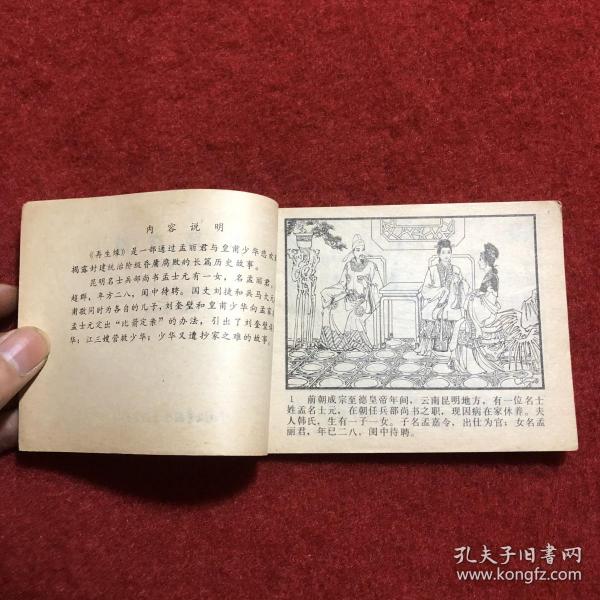 内容说明
《再生缘》是一部通过孟丽君与皇甫少华悲欢
揭露封建统治阶级昏庸腐败的长篇历史故事。
昆明名士兵部尚书孟士元有一女，名孟丽君，
超群，年方二八，闺中待聘。国丈刘捷和兵马大元
甫敬同时为各自的儿子，刘奎璧和皇甫少华向孟家
孟士元定出“比箭定亲”的办法，引出了刘奎璧
华；江三嫂营救少华；少华又遭抄家之难的故事。
1 前朝成宗至德皇帝年间，云南昆明地方，有一位名士
姓孟名士元，在朝任兵部尚书之职，现因病在家休养。夫
人韩氏，生有一子一女。子名孟嘉令，出仕为官；女名孟
丽君，年已二八，闺中待聘。
孔夫子旧书网
www.kongfz.com